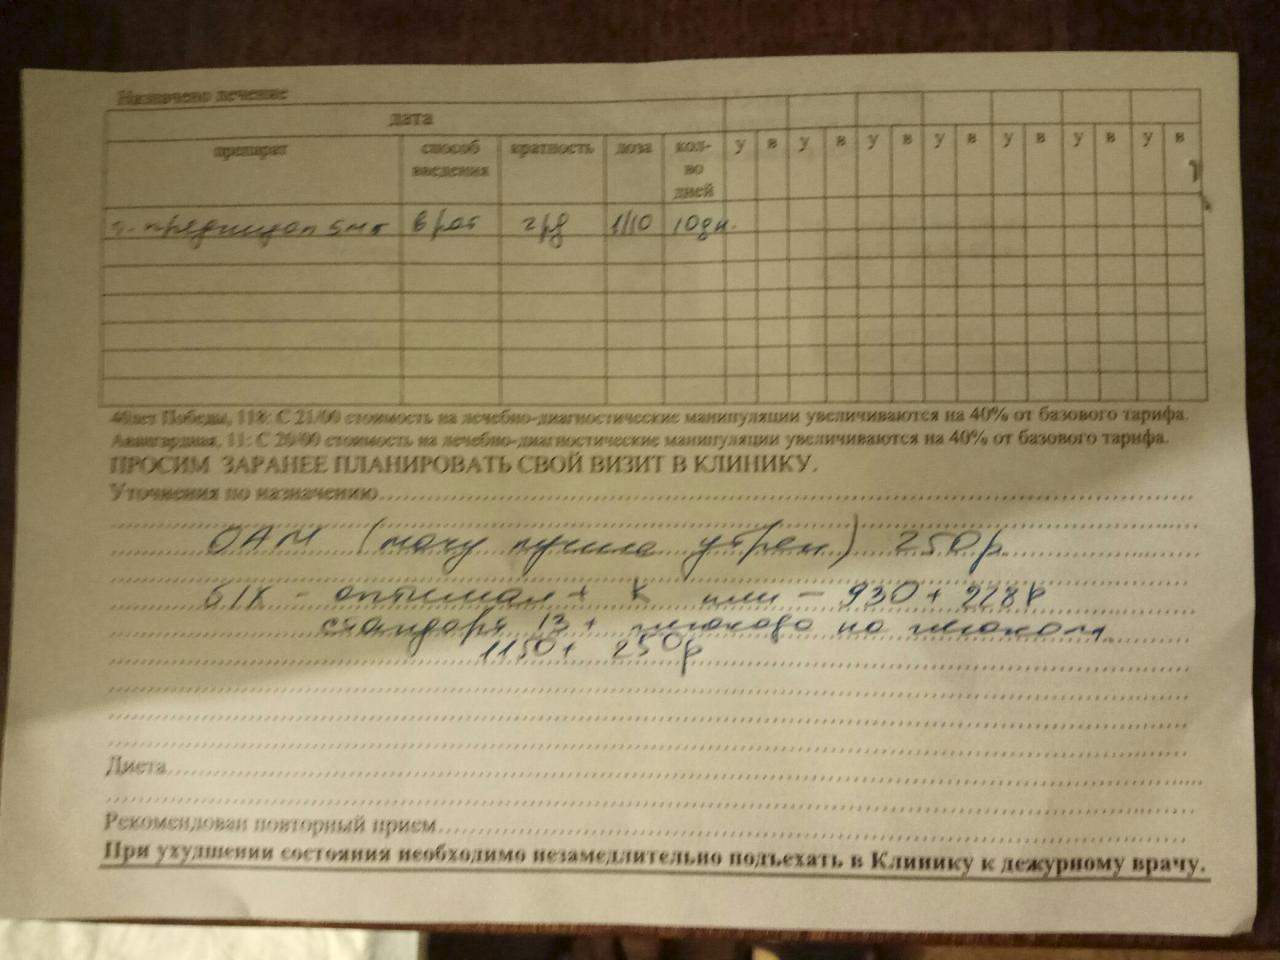 Назначено лечение
дата
препарат способ введения кратность доза кол-во дней у в у в у в у в у в у в у в
т. преднизол 5мг в рот 2р/д 1/10 10дн.
40лет Победы, 118: С 21/00 стоимость на лечебно-диагностические манипуляции увеличиваются на 40% от базового тарифа.
Авангардная, 11: С 20/00 стоимость на лечебно-диагностические манипуляции увеличиваются на 40% от базового тарифа.
ПРОСИМ ЗАРАНЕЕ ПЛАНИРОВАТЬ СВОЙ ВИЗИТ В КЛИНИКУ.
Уточнения по назначению
ОАМ (мочу лучше утрен) 250р
Б/Х - оптимал + К или - 930 + 228р
стандарт 13 +
1150 + 250р
Диета
Рекомендован повторный прием
При ухудшении состояния необходимо незамедлительно подъехать в Клинику к дежурному врачу.